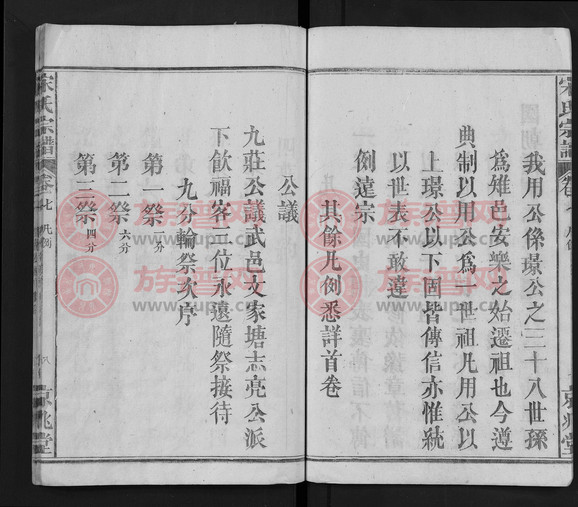 我用公係璟公之三十八世孫
為雉邑安樂之始遷祖也今遵
典制以用公為一世祖凡用公以
上璟公以下固皆傳信亦惟統
以世表不敢違
例違宗
其餘凡例悉詳首卷
公議
九莊公議武邑文家塘志亮公派
下飲福客三位永遠隨祭接待
九分輪祭次序
第一祭一分
第二祭六分
第三祭四分
宋氏宗譜
卷七 凡例
京兆堂
族譜网